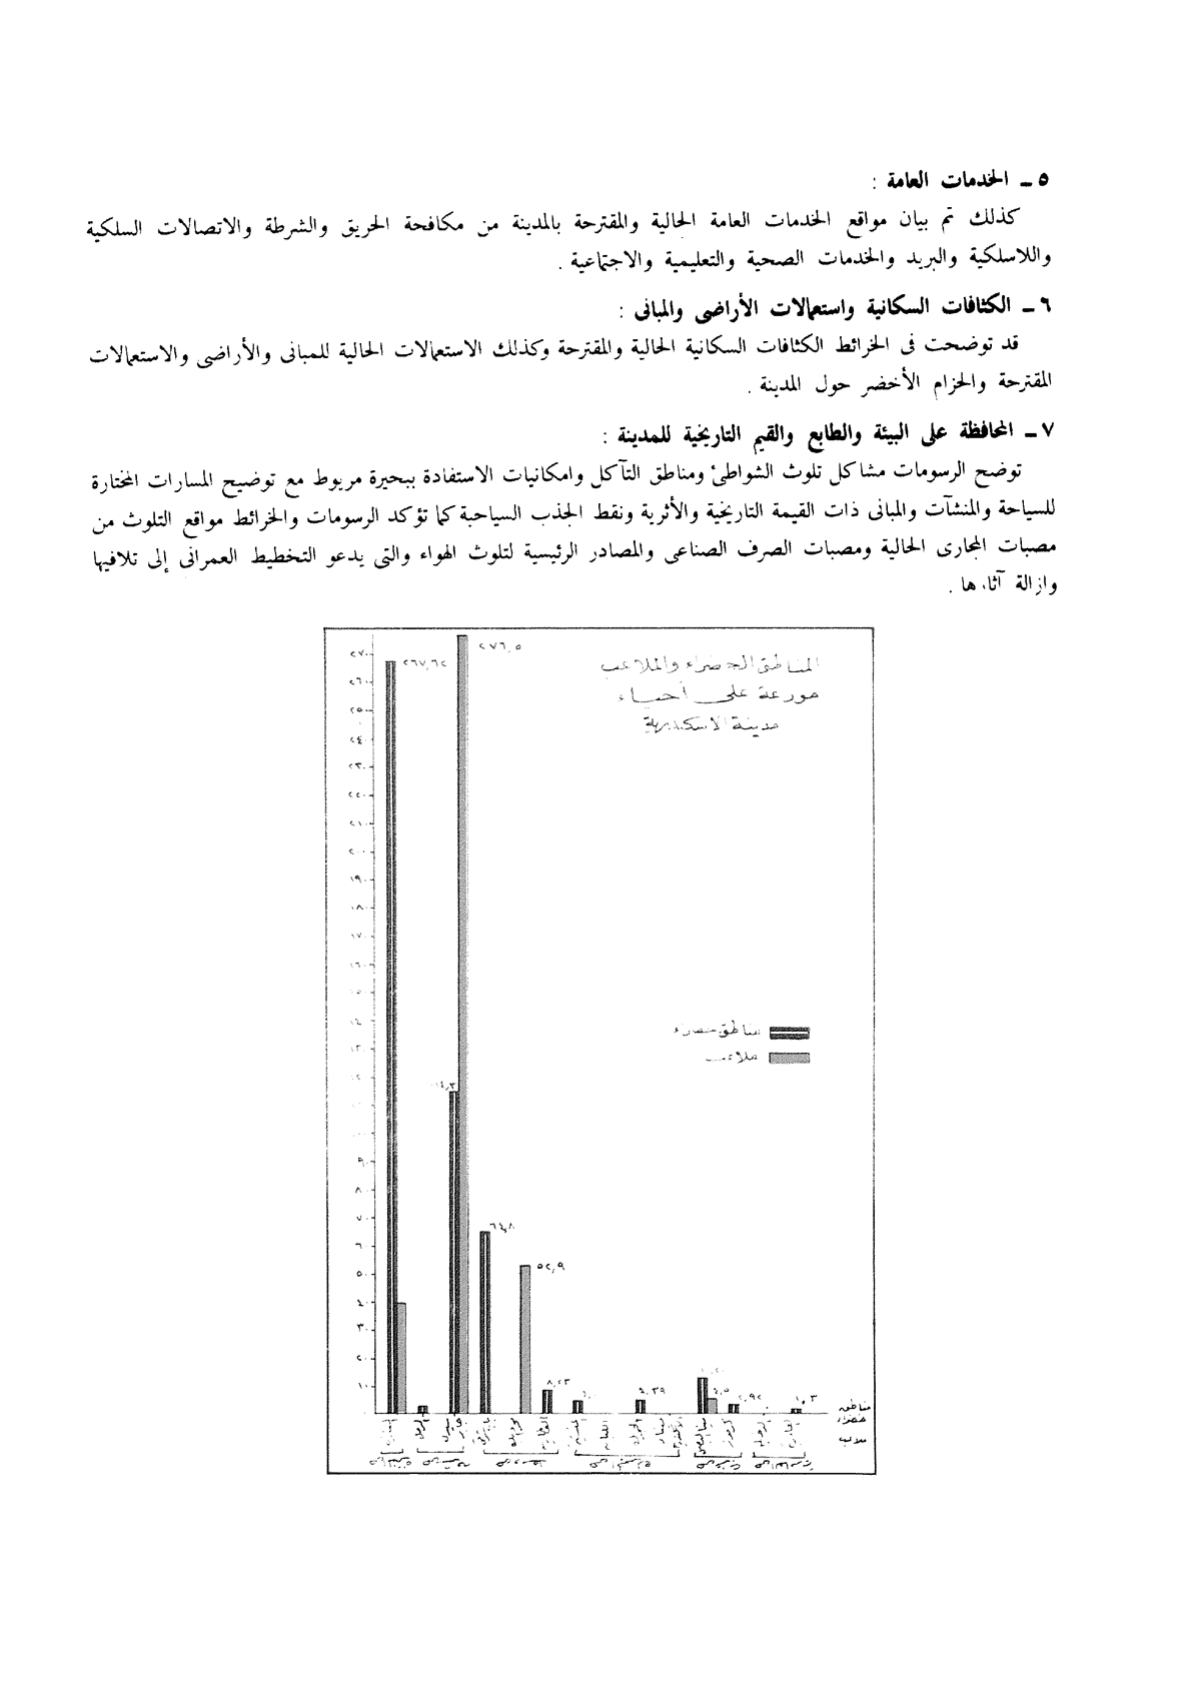 ٥ ــ الخدمات العامة :
كذلك تم بيان مواقع الخدمات العامة الحالية والمقترحة بالمدينة من مكافحة الحريق والشرطة والاتصالات السلكية
واللاسلكية والبريد والخدمات الصحية والتعليمية والاجتماعية .
٦ ــ الكثافات السكانية واستعمالات الأراضى والمبانى :
قد توضحت فى الخرائط الكثافات السكانية الحالية والمقترحة وكذلك الاستعمالات الحالية للمبانى والأراضى والاستعمالات
المقترحة والحزام الأخضر حول المدينة .
٧ ــ المحافظة على البيئة والطابع والقيم التاريخية للمدينة :
توضح الرسومات مشاكل تلوث الشواطئ ومناطق التآكل وامكانيات الاستفادة ببحيرة مريوط مع توضيح المسارات المختارة
للسياحة والمنشآت والمبانى ذات القيمة التاريخية والأثرية ونقط الجذب السياحية كما تؤكد الرسومات والخرائط مواقع التلوث من
مصبات المجارى الحالية ومصبات الصرف الصناعى والمصادر الرئيسية لتلوث الهواء والتى يدعو التخطيط العمرانى إلى تلافيها
وازالة آثارها .
المناطق الخضراء والملاعب
موزعة على أحياء
مدينة الاسكندرية
٢٧٦,٥
٢٦٧,٦٢
٢٧٠
٢٦٠
٢٥٠
٢٤٠
٢٣٠
٢٢٠
٢١٠
٢٠٠
١٩٠
١٨٠
١٧٠
١٦٠
مناطق خضراء
ملاعب
٩٠
٨٠
٧٠
٦٠
٥٠
٤٠
٣٠
٢٠
١٠
٦٤,٨
٥٢,٩
٨,٢٣
٤,٣٩
٤,٥
٢,٩٢
١,٠٣
مناطق
خضراء
ملاعب